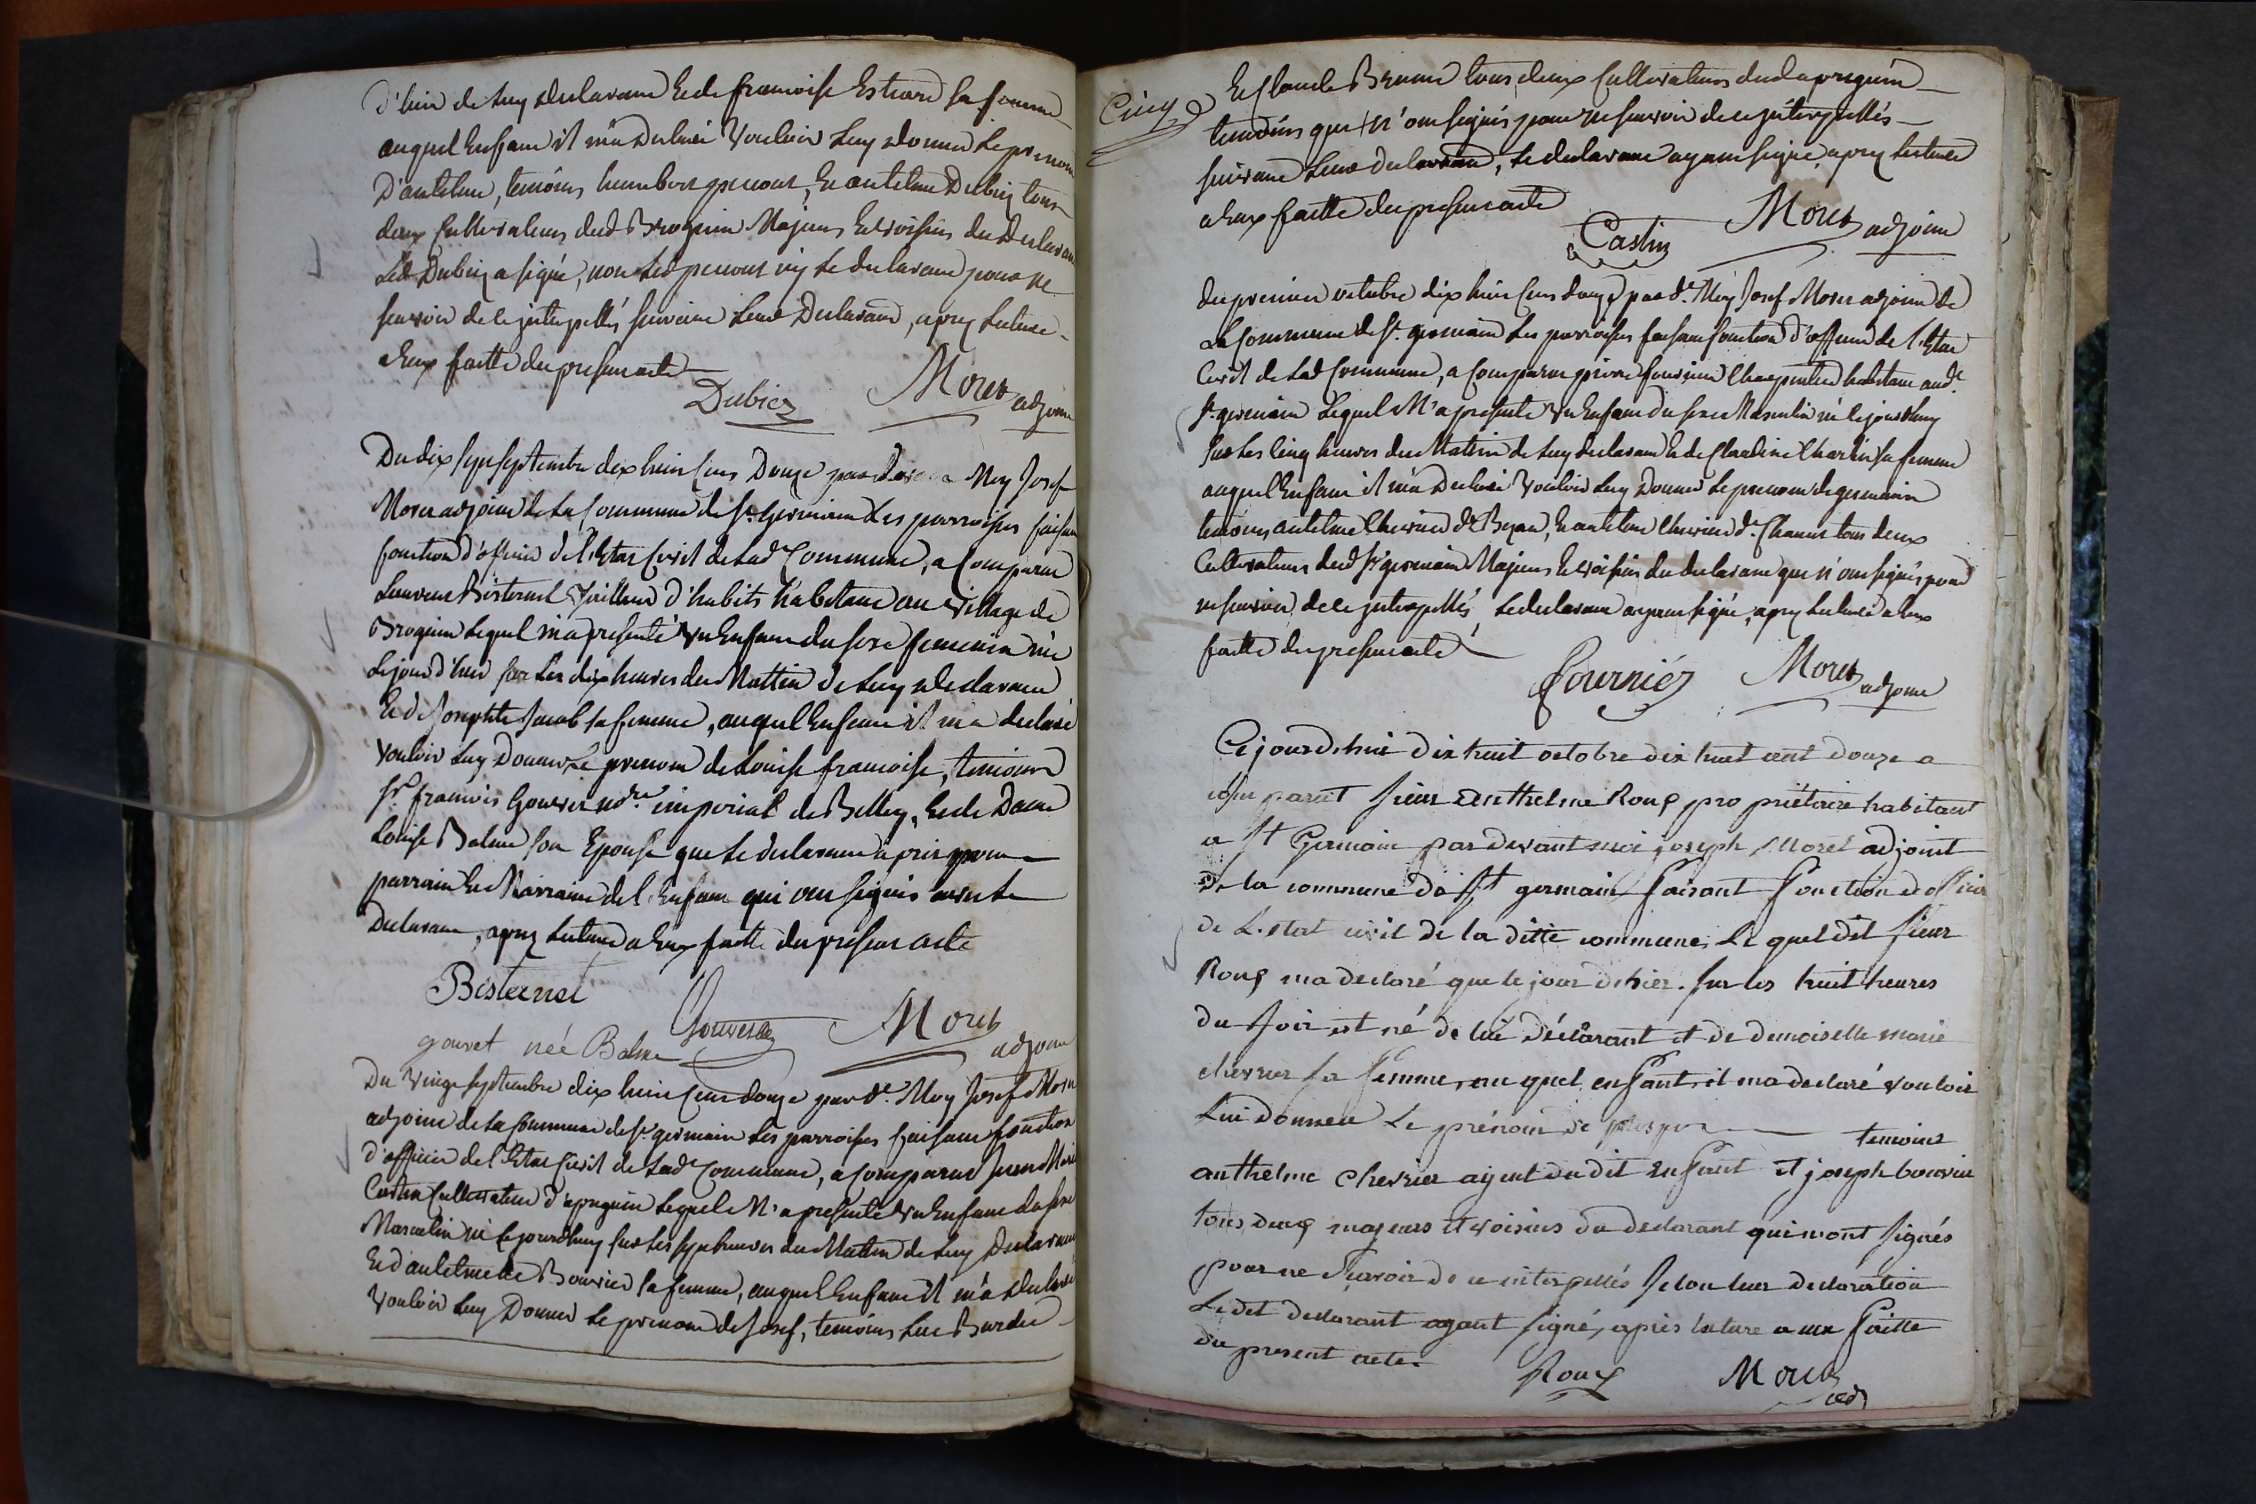 d'hier de luy declarant et de francoise Estiard sa femme
auquel enfant il m'a declaré vouloir luy donner le prenom
D'antelme, temoins humbert perrout, et antelme Dubiez tous
deux Cultivateurs dud Brognin Majeurs et voisins du declarant
Led Dubiez a signé, non led perrout ny le declarant pour ne
scavoir de ce interpellés suivant leur declaration, apres lecture
a eux faitte du present acte
Dubiez Moret adjoint
Du dix sept septembre dix huit cens Douze par devant Moy Josef
Moret adjoint de la Commune de St. Germain Les parroisses faisant
fonction d'officier de l'Etat Civil de lad Commune, a comparut
Laurent Bisternel tailleur d'habits habitant au village de
Brognin lequel m'a presenté un enfant du sexe feminin né
le jour d'hier sur les dix heures du Mattin de luy declarant
et de Josephte Jacob sa femme, auquel enfant il m'a declaré
vouloir luy Donner le prenom de Louise francoise, temoins
Sr. francois Gouvet imperial de Belley, et de Dame
Louise Balme son Epouse que le declarant a pris pour
parrain et Marraine de l'enfant qui ont signés avec le
Declarant, apres lecture a eux faitte du present acte
Bisternel Gouvet Moret
gouvet née Balme adjoint
Du vingt septembre dix huit cens douze par dt. Moy Josef Moret
adjoint de la Commune de St germain les parroisses faisant fonction
d'officier de l'Etat Civil de lad Commune, a comparut Jean Marie
Castin Cultivateur d'apreguin lequel M'a presenté un enfant du sexe
Masculin né le jourdhuy sur les sept heures du Mattin de luy Declarant
et d'antelmette Bouvier sa femme, auquel enfant il m'a declaré
vouloir luy Donner le prenom de Josef, temoins Luc Burdet
Cinq
et Claude Brunet tous deux Cultivateurs dud apreguin
temoins qui n'ont signés pour ne scavoir de ce interpellés
suivant leur declaration, le declarant ayant signé, apres lecture
a eux faitte du present acte
Castin Moret adjoint
du premier octobre dix huit cens douze par dt. Moy Josef Moret adjoint de
la Commune de St. germain les parroisses faisant fonction d'officier de l'Etat
Civil de lad Commune, a comparut pierre fournier Charpentier habitant aud.
St. germain lequel M'a presenté un enfant du sexe Masculin né le jourdhuy
sur les cinq heures du Mattin de luy declarant et de Claudine Charlin sa femme
auquel enfant il m'a declaré vouloir luy Donner le prenom de germain
temoins antelme Chevrier dt. , et antelme Chevrier dt. tous deux
Cultivateurs dud St germain Majeurs et voisins du declarant qui n'ont signés pour
ne scavoir de ce interpellés, le declarant ayant signé, apres lecture a eux
faitte du present acte
Fournier Moret adjoint
Cejourdhui dix huit octobre dix huit cent douze a
comparut sieur Anthelme Roux propriétaire habitant
a St Germain par devant moi joseph Moret adjoint
de la commune de St germain faisant fonction d officier
de L'etat civil de la ditte commune, Le quel dit sieur
Roux ma declaré que le jour dhier. sur les huit heures
du soir est né de lui déclarant et de demoiselle marie
chevrier sa femme, au quel enfant, il ma declaré vouloir
Lui donner Le prénom de prosper temoins
anthelme chevrier du dit enfant et joseph bouvier
tous deux majeurs et voisins du declarant qui n'ont signés
pour ne scavoir de ce interpellés selon leur declaration
Ledit declarant ayant signé, après lecture a eux faitte
du present acte.
Roux Moret
adj